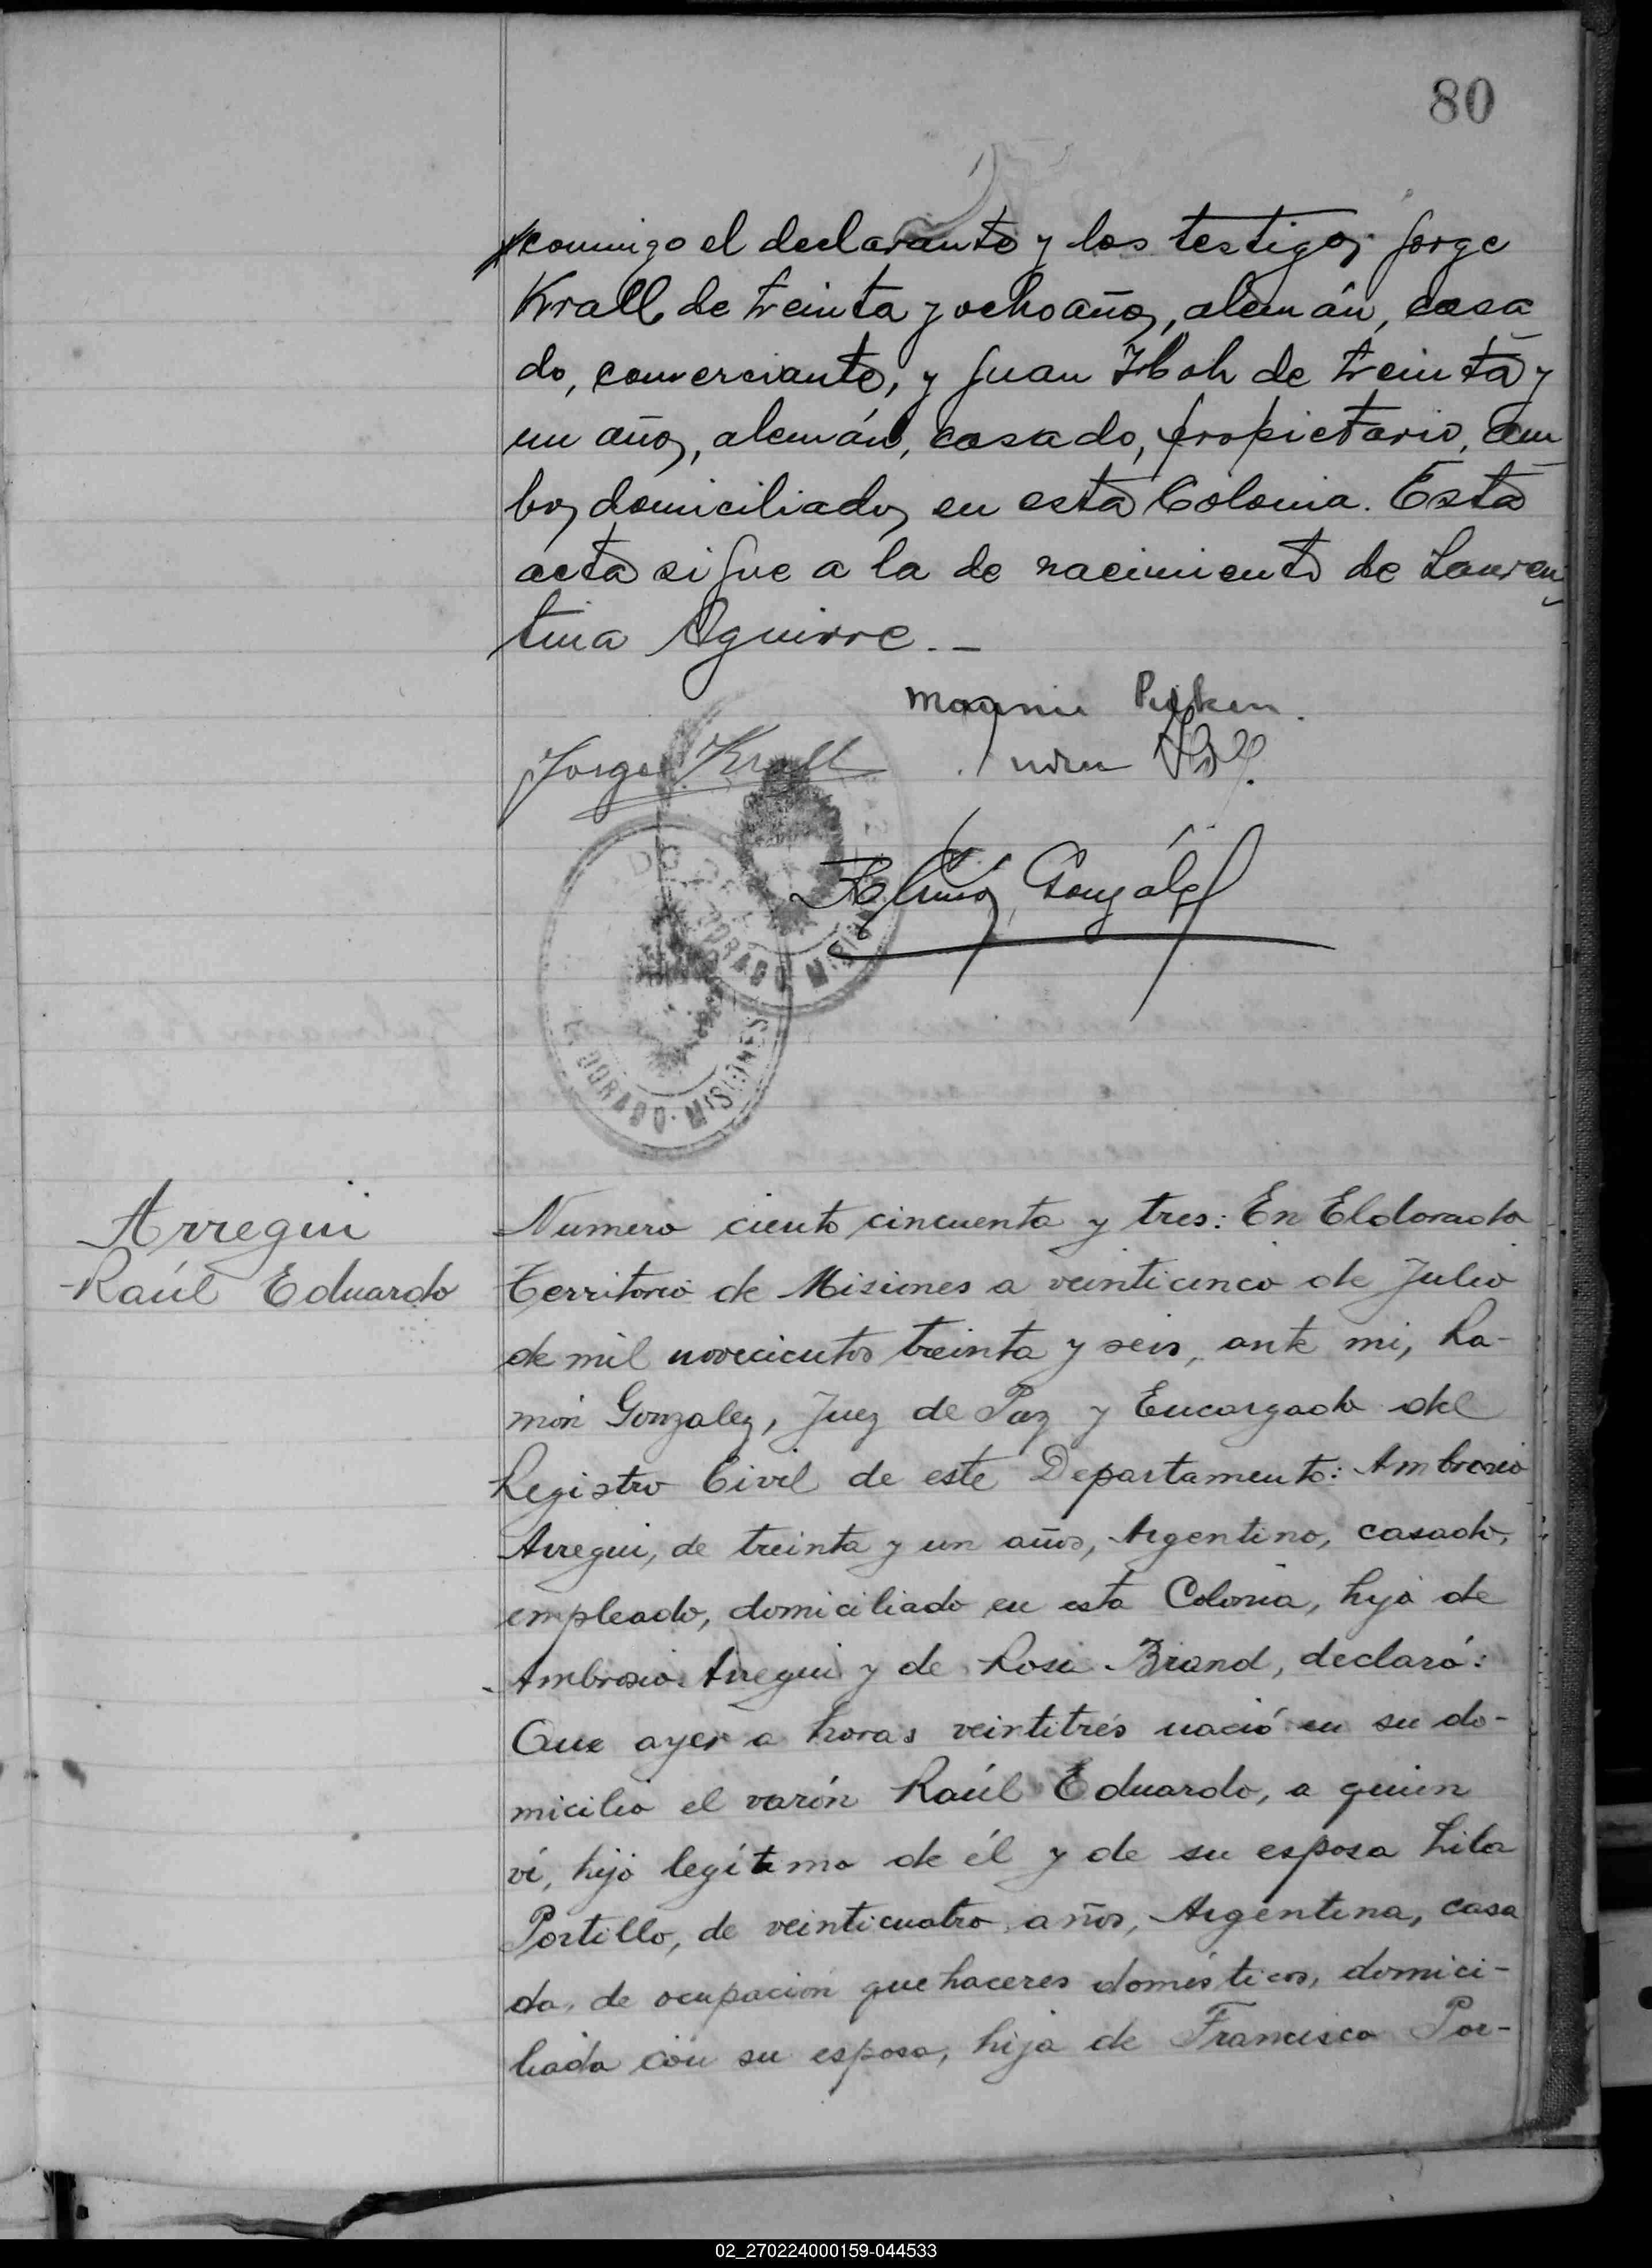 80
conmigo el declarante y los testigos Jorge
Krall de treinta y ocho años, alemán, casa
do, comerciante, y Juan de treinta y
un años, alemán, casado, propietario, am
bos domiciliados en esta Colonia. Esta
acta sigue a la de nacimiento de Lauren
tina Aguirre._
Jorge Krall
González
EL DORADO · MISIONES
Arregui
Raúl Eduardo
Numero ciento cincuenta y tres: En Eldorado
Territorio de Misiones a veinticinco de Julio
de mil novecientos treinta y seis, ante mi, Ra-
món Gonzalez, Juez de Paz y Encargado del
Registro Civil de este Departamento: Ambrosio
Arregui, de treinta y un años, Argentino, casado,
empleado, domiciliado en esta Colonia, hijo de
Ambrosio Arregui y de Rosa Briand, declaró:
Que ayer a horas veintitrés nació en su do-
micilio el varón Raúl Eduardo, a quien
ví, hijo legítimo de él y de su esposa Lila
Portillo, de veinticuatro años, Argentina, casa
da, de ocupación quehaceres domésticos, domici-
liada con su esposo, hija de Francisco Por-
02_270224000159-044533